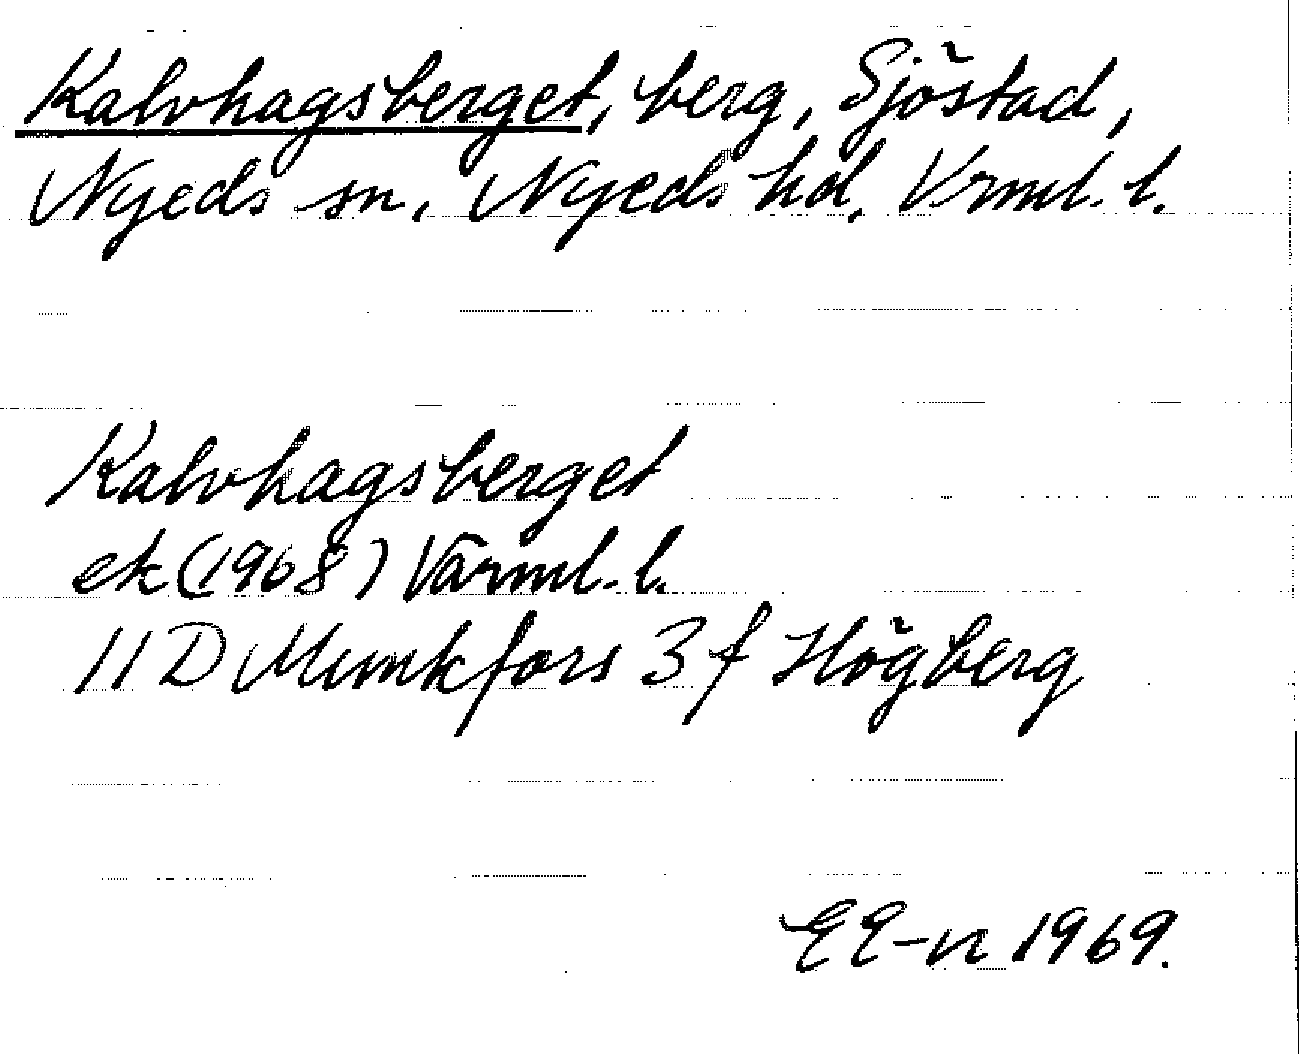 Kalvhagsberget, berg, Sjöstad,
Nyeds sn, Nyeds hd, Vrml. l.
Kalvhagsberget
ek (1968) Värml. l.
11 D Munkfors 3 f Högberg
EE-n 1969.